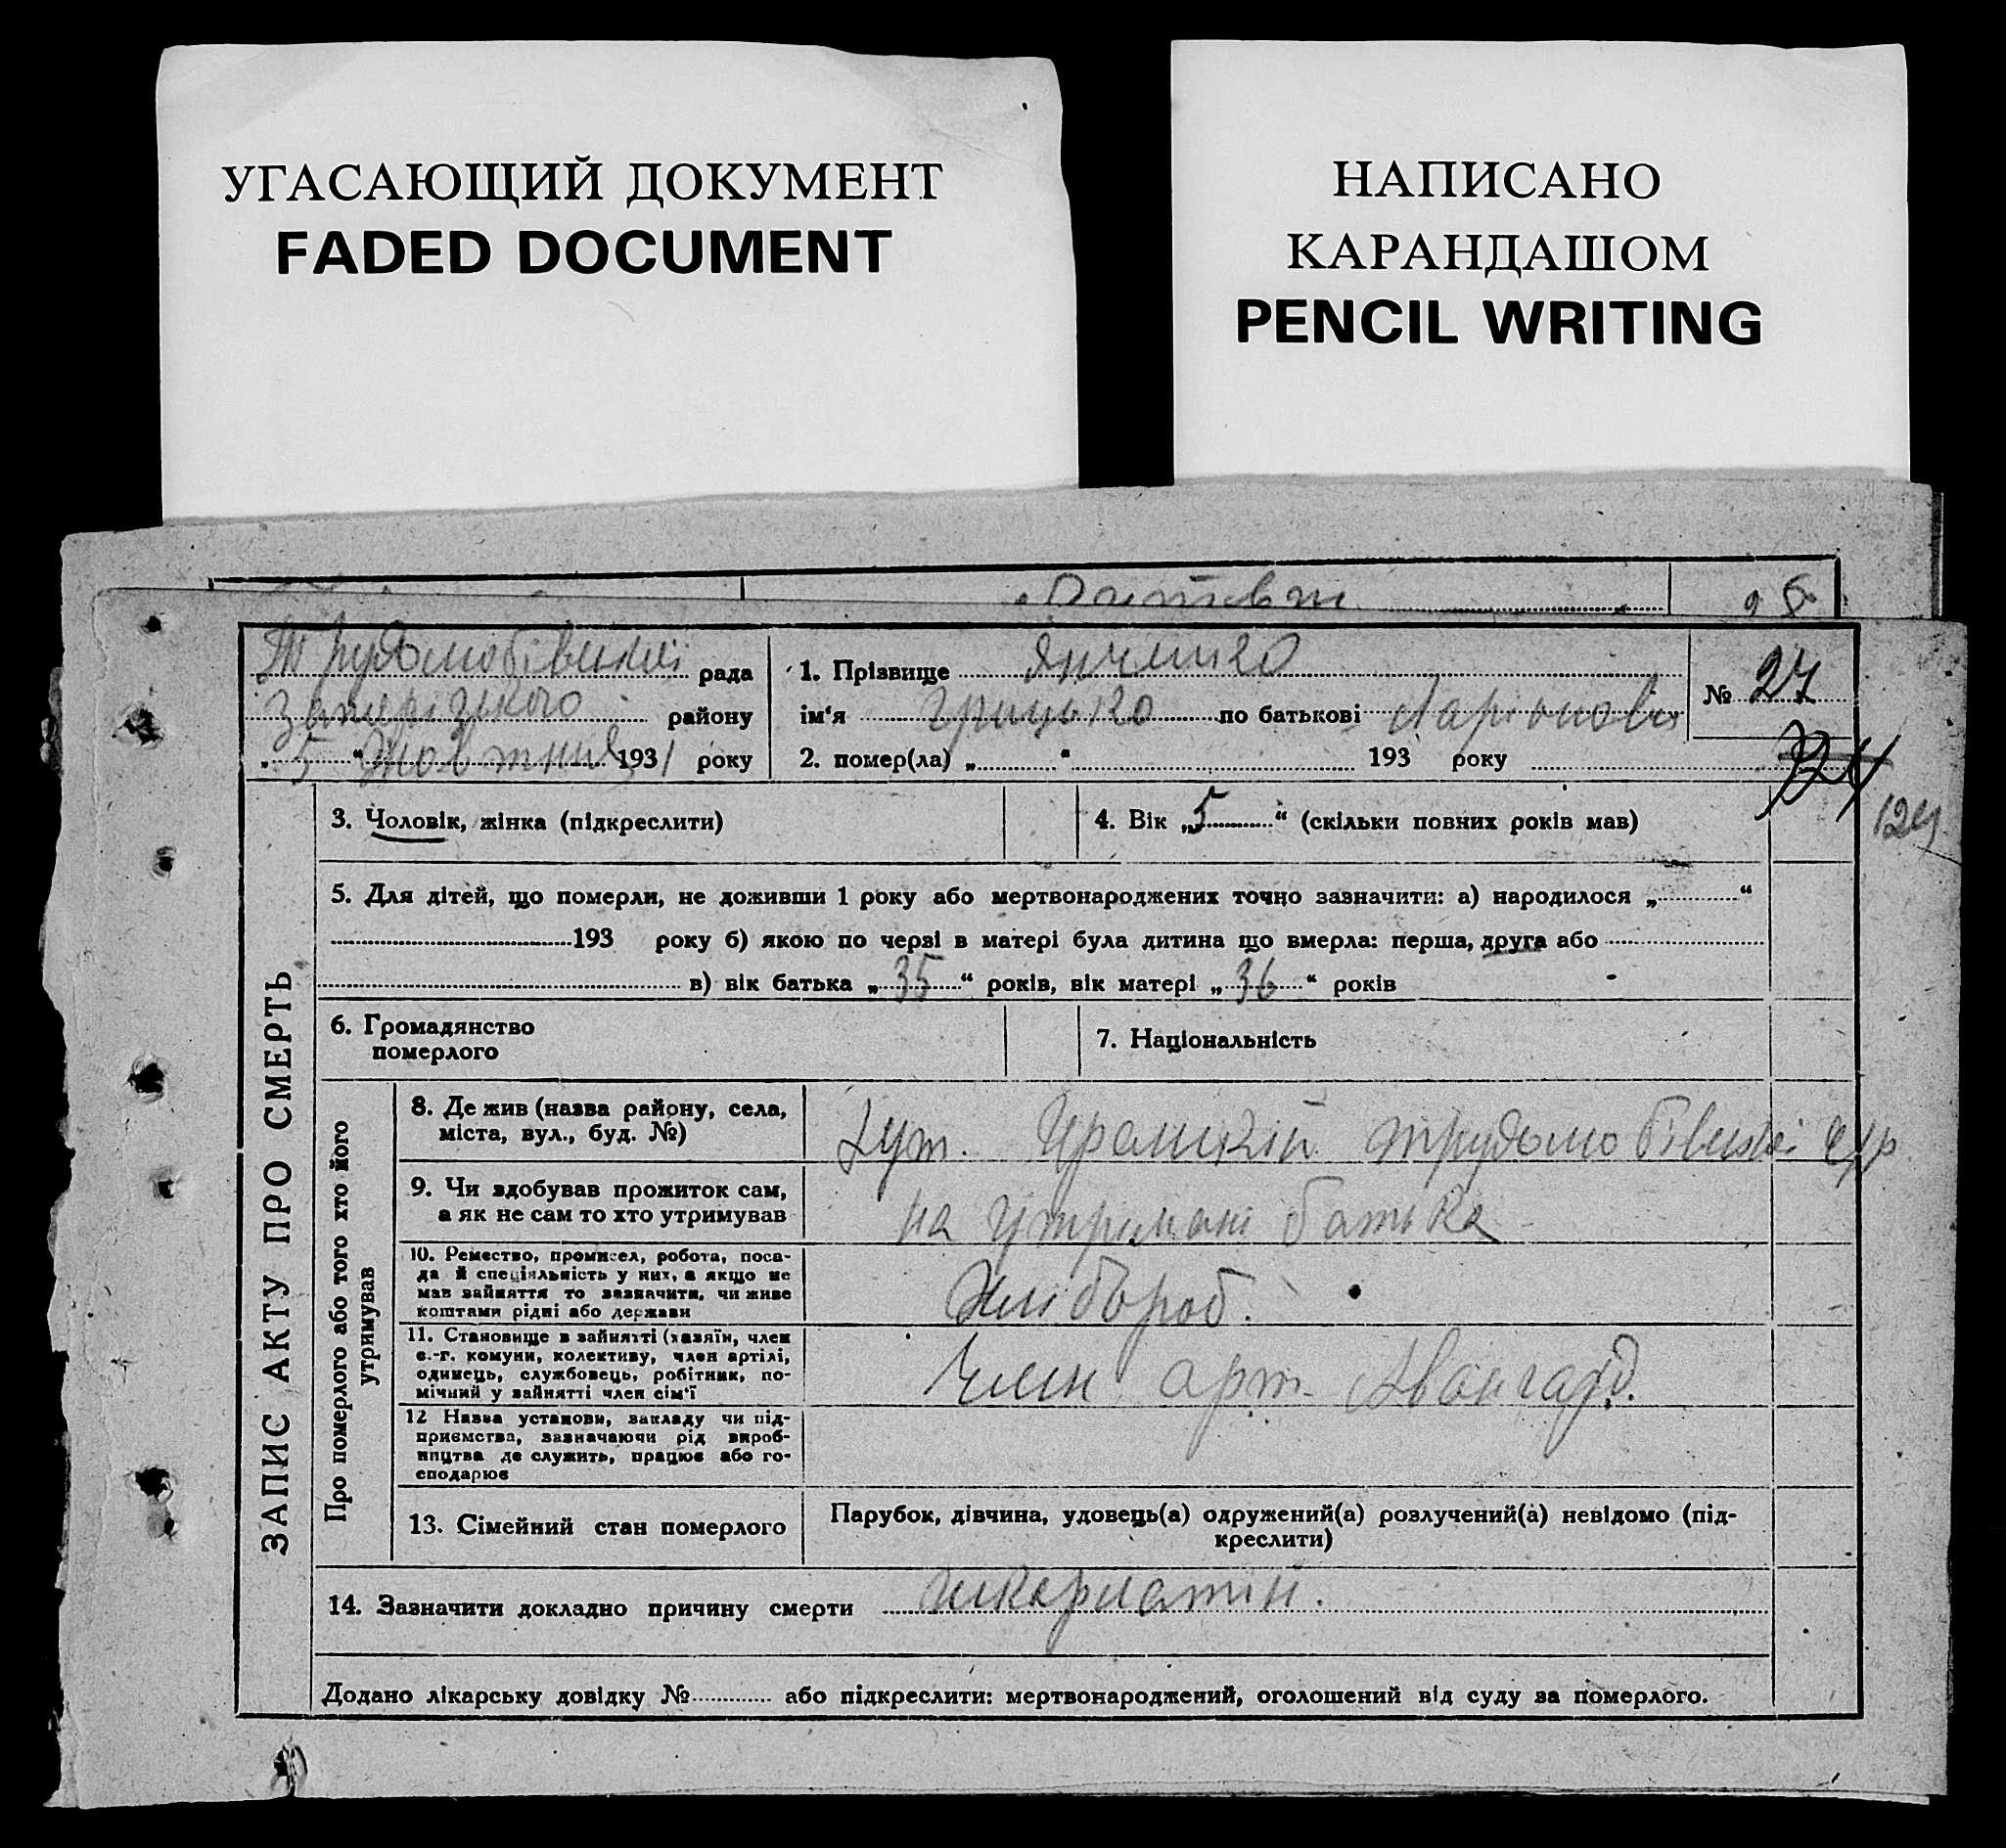 УГАСАЮЩИЙ ДОКУМЕНТ
FADED DOCUMENT
НАПИСАНО
КАРАНДАШОМ
PENCIL WRITING
Трудолюбівської рада
Запорізького району
„5“ Жовтня 1931 року
1. Прізвище
ім‘я Грицько по батькові Ларіонові
2. помер(ла) „ “ 193 року
№ 27
124
ЗАПИС АКТУ ПРО СМЕРТЬ
3. Чоловік, жінка (підкреслити)
4. Вік „5“ (скільки повних років мав)
5. Для дітей, що померли, не доживши 1 року або мертвонароджених точно зазначити: а) народилося „ “
193 року б) якою по черві в матері була дитина що вмерла: перша, друга або
в) вік батька „35“ років, вік матері „36“ років
6. Громадянство
померлого
7. Національність
Про померлого або того хто його
утримував
8. Де жив (назва району, села,
міста, вул., буд. №)
хут. трудолюбівської с/р
9. Чи здобував прожиток сам,
а як не сам то хто утримував
на утримані батька
10. Ремество, промисел, робота, поса-
да й спеціяльність у них, а якщо не
мав зайняття то зазначити, чи живе
коштами рідні або держави
Хлібороб.
11. Становище в зайнятті (хазяїн, член
с.-г. комуни, колективу, член артілі,
одинець, службовець, робітник, по-
мічний у зайнятті член сім‘ї
Член арт. Авангард.
12 Назва установи, закладу чи під-
приємства, зазначаючи рід вироб-
ництва де служить, працює або го-
сподарює
13. Сімейний стан померлого
Парубок, дівчина, удовець(а) одружений(а) розлучений(а) невідомо (під-
креслити)
14. Зазначити докладно причину смерти шкарлатин.
Додано лікарську довідку № або підкреслити: мертвонароджений, оголошений від суду за померлого.